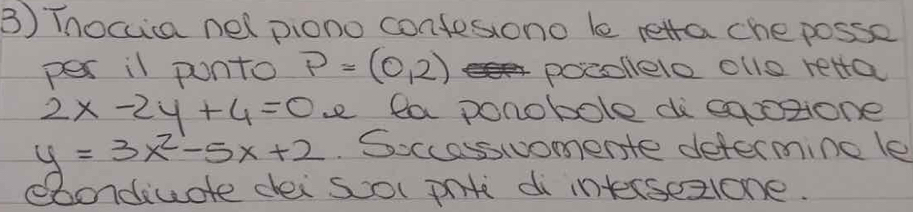 3) Traccia nel piano cartesiano la retta che passa
per il punto P = (0,2) parallela alla retta
2x - 2y + 4 = 0 e la parabola di equazione
y = 3x² - 5x + 2. Successivamente determina le
coordinate dei suoi pnti di intersezione.